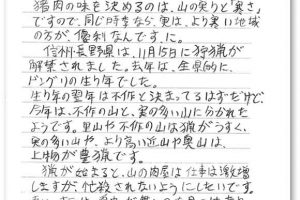 猪肉の味を決めるのは、山の実りと「寒さ」
ですので、同じ時季なら、実は、より寒い地域
の方が、優利なんです、に。
信州・長野県は、11月15日に狩猟が
解禁されました。去年は、全県的に、
ドングリの生り年でした。
生り年の翌年は不作と決まってるはずだけど、
今年は、不作の山と、実の多い山に分かれた
ようです。里山や不作の山は猟がうすく、
実の多い山や、より高い近山や奥山は、
上物が豊猟です。
猟が始まると、山の肉屋は仕事は激増
しますが、忙殺されないようにしたいです。